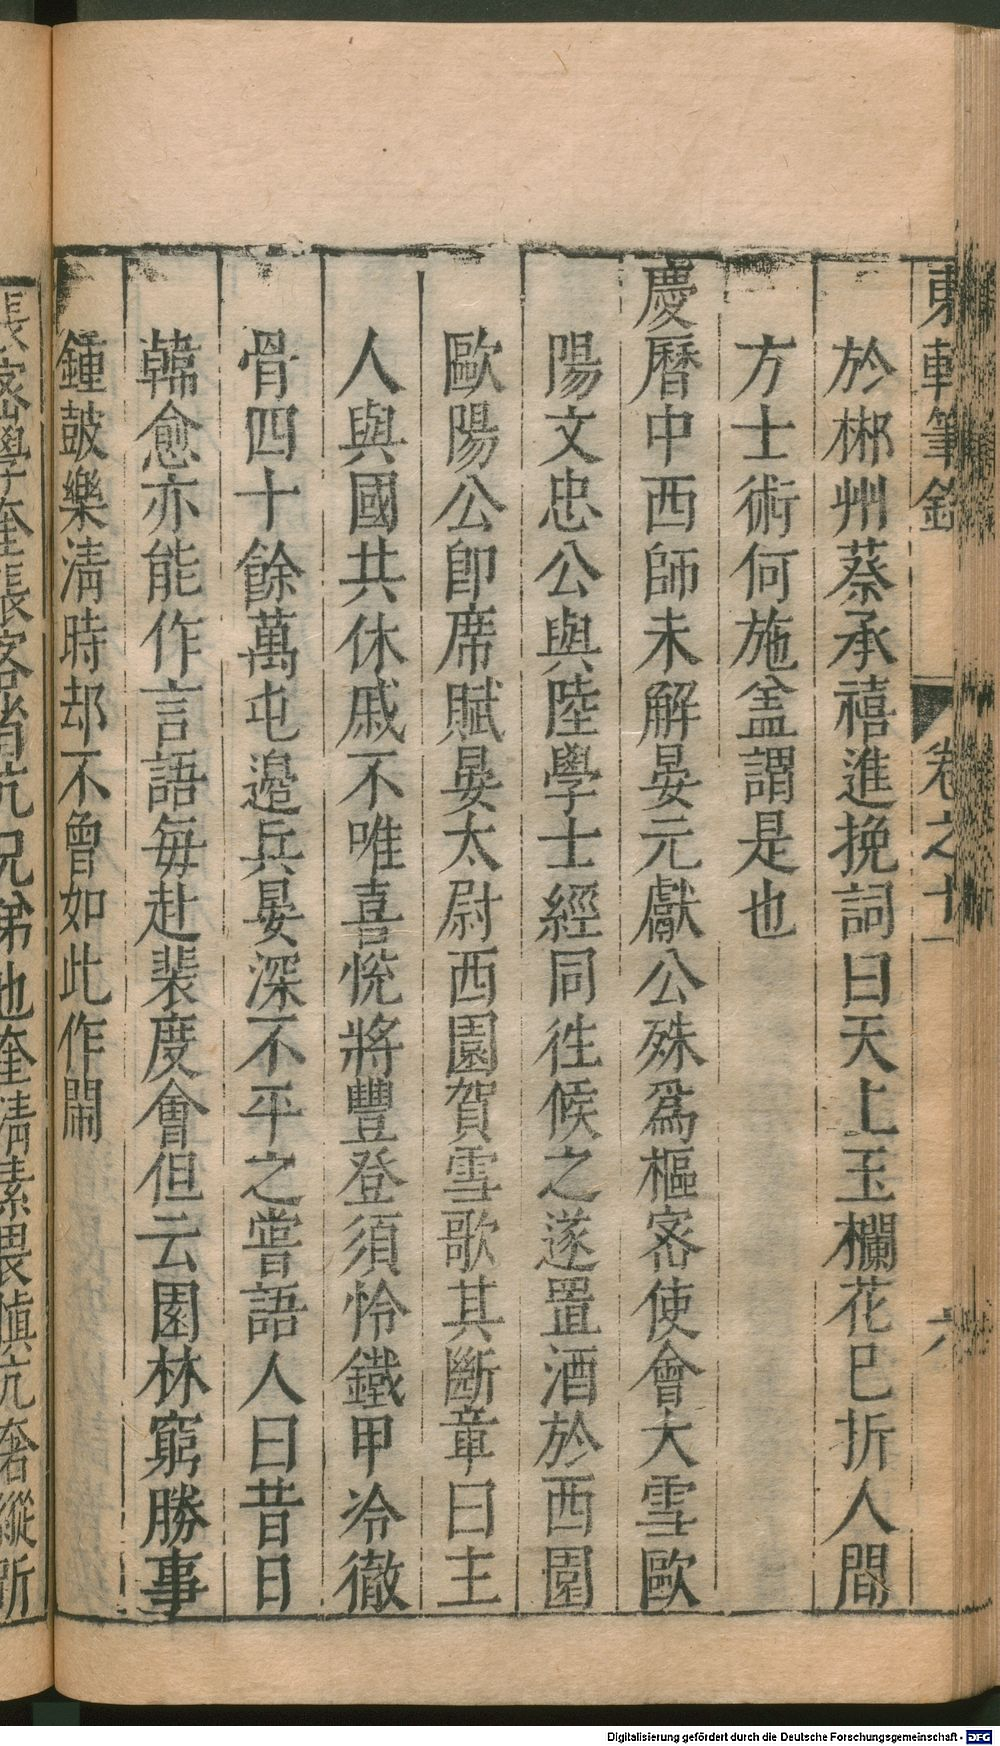 東軒筆錄 卷之十一 六
於郴州蔡承禧進挽詞曰天上玉欄花已折人間
方士術何施盖謂是也
慶曆中西師未解晏元獻公殊爲樞密使會大雪歐
陽文忠公與陸學士經同徃候之遂置酒於西園
歐陽公卽席賦晏太尉西園賀雪歌其斷章曰主
人與國共休戚不唯喜悅將豐登須怜鐵甲冷徹
骨四十餘萬屯邉兵晏深不平之嘗語人曰昔日
韓愈亦能作言語每赴裴度會但云園林窮勝事
鍾皷樂淸時却不曾如此作閙
張密學奎張客省亢兄弟也奎淸素畏愼亢奢縱所
Digitalisierung gefördert durch die Deutsche Forschungsgemeinschaft - DFG